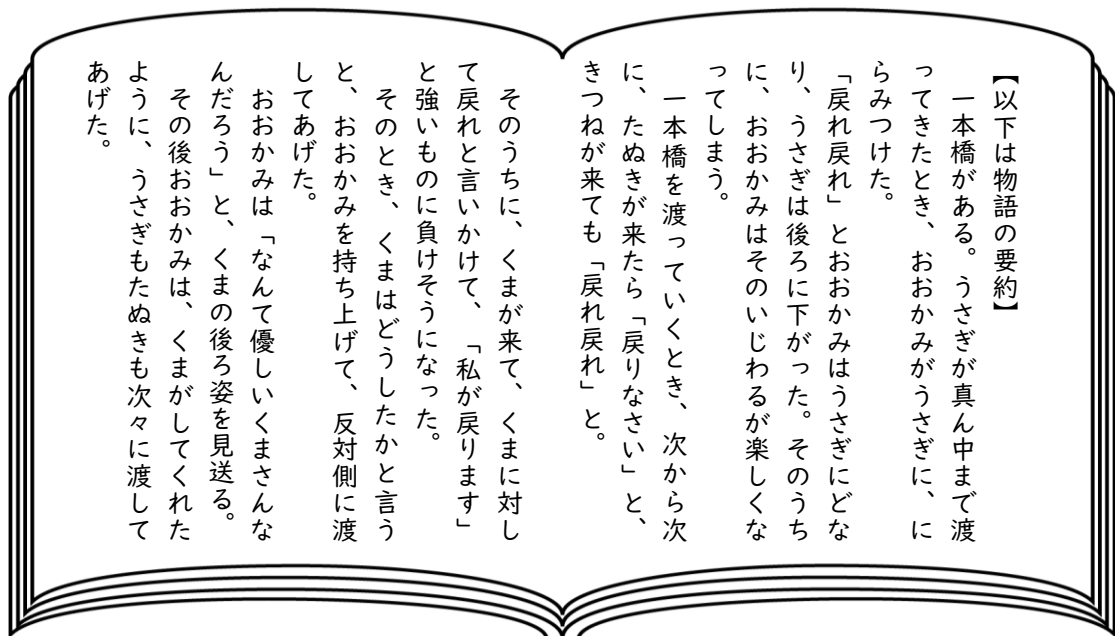 【以下は物語の要約】
　一本橋がある。うさぎが真ん中まで渡
ってきたとき、おおかみがうさぎに、に
らみつけた。
「戻れ戻れ」とおおかみはうさぎにどな
り、うさぎは後ろに下がった。そのうち
に、おおかみはそのいじわるが楽しくな
ってしまう。
　一本橋を渡っていくとき、次から次
に、たぬきが来たら「戻りなさい」と、
きつねが来ても「戻れ戻れ」と。
　そのうちに、くまが来て、くまに対し
て戻れと言いかけて、「私が戻ります」
と強いものに負けそうになった。
　そのとき、くまはどうしたかと言う
と、おおかみを持ち上げて、反対側に渡
してあげた。
　おおかみは「なんて優しいくまさんな
んだろう」と、くまの後ろ姿を見送る。
　その後おおかみは、くまがしてくれた
ように、うさぎもたぬきも次々に渡して
あげた。